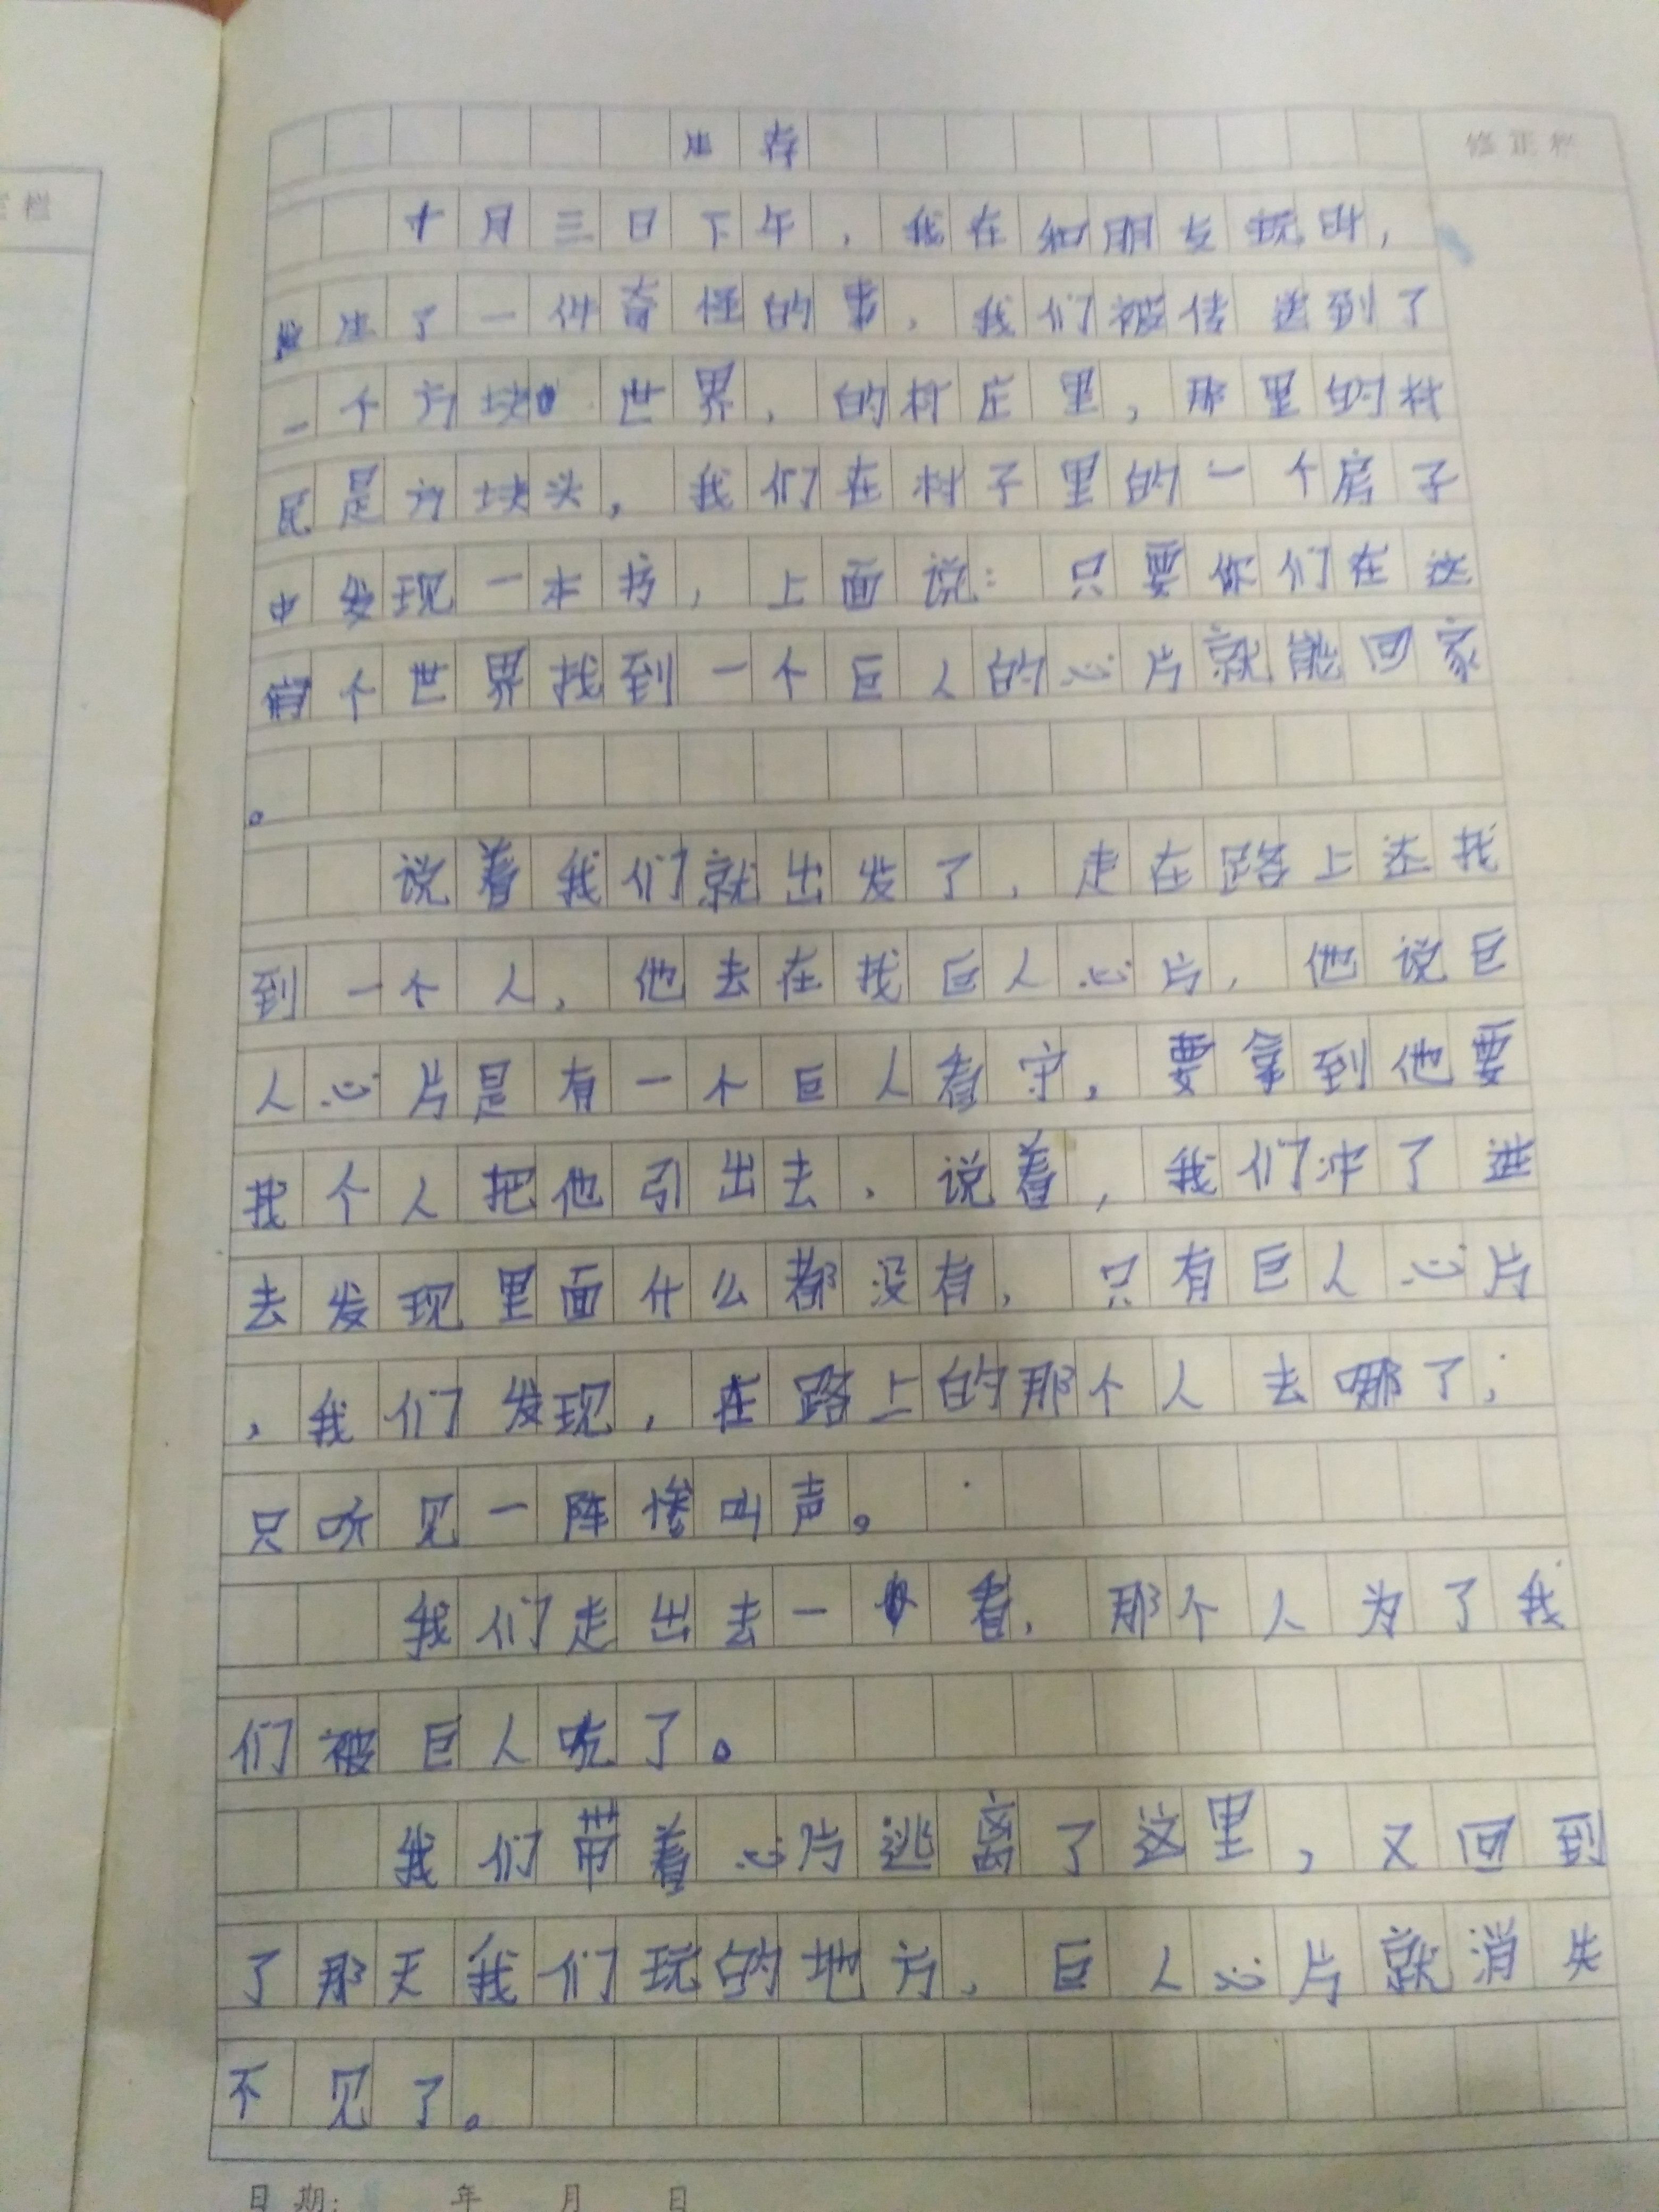 生存
修正栏
正栏
十月三日下午，我在和朋友玩时，
发生了一件奇怪的事，我们被传送到了
一个方块世界，的村庄里，那里的村
民是方块头，我们在村子里的一个房子
中发现一本书，上面说：只要你们在这
个世界找到一个巨人的心片就能回家
。
说着我们就出发了，走在路上还找
到一个人，他去在找巨人心片，他说巨
人心片是有一个巨人看守，要拿到他要
找个人把他引出去，说着，我们冲了进
去发现里面什么都没有，只有巨人心片
，我们发现，在路上的那个人去哪了，
只听见一阵惨叫声。
我们走出去一看，那个人为了我
们被巨人吃了。
我们带着心片逃离了这里，又回到
了那天我们玩的地方，巨人心片就消失
不见了。
日期： 年 月 日